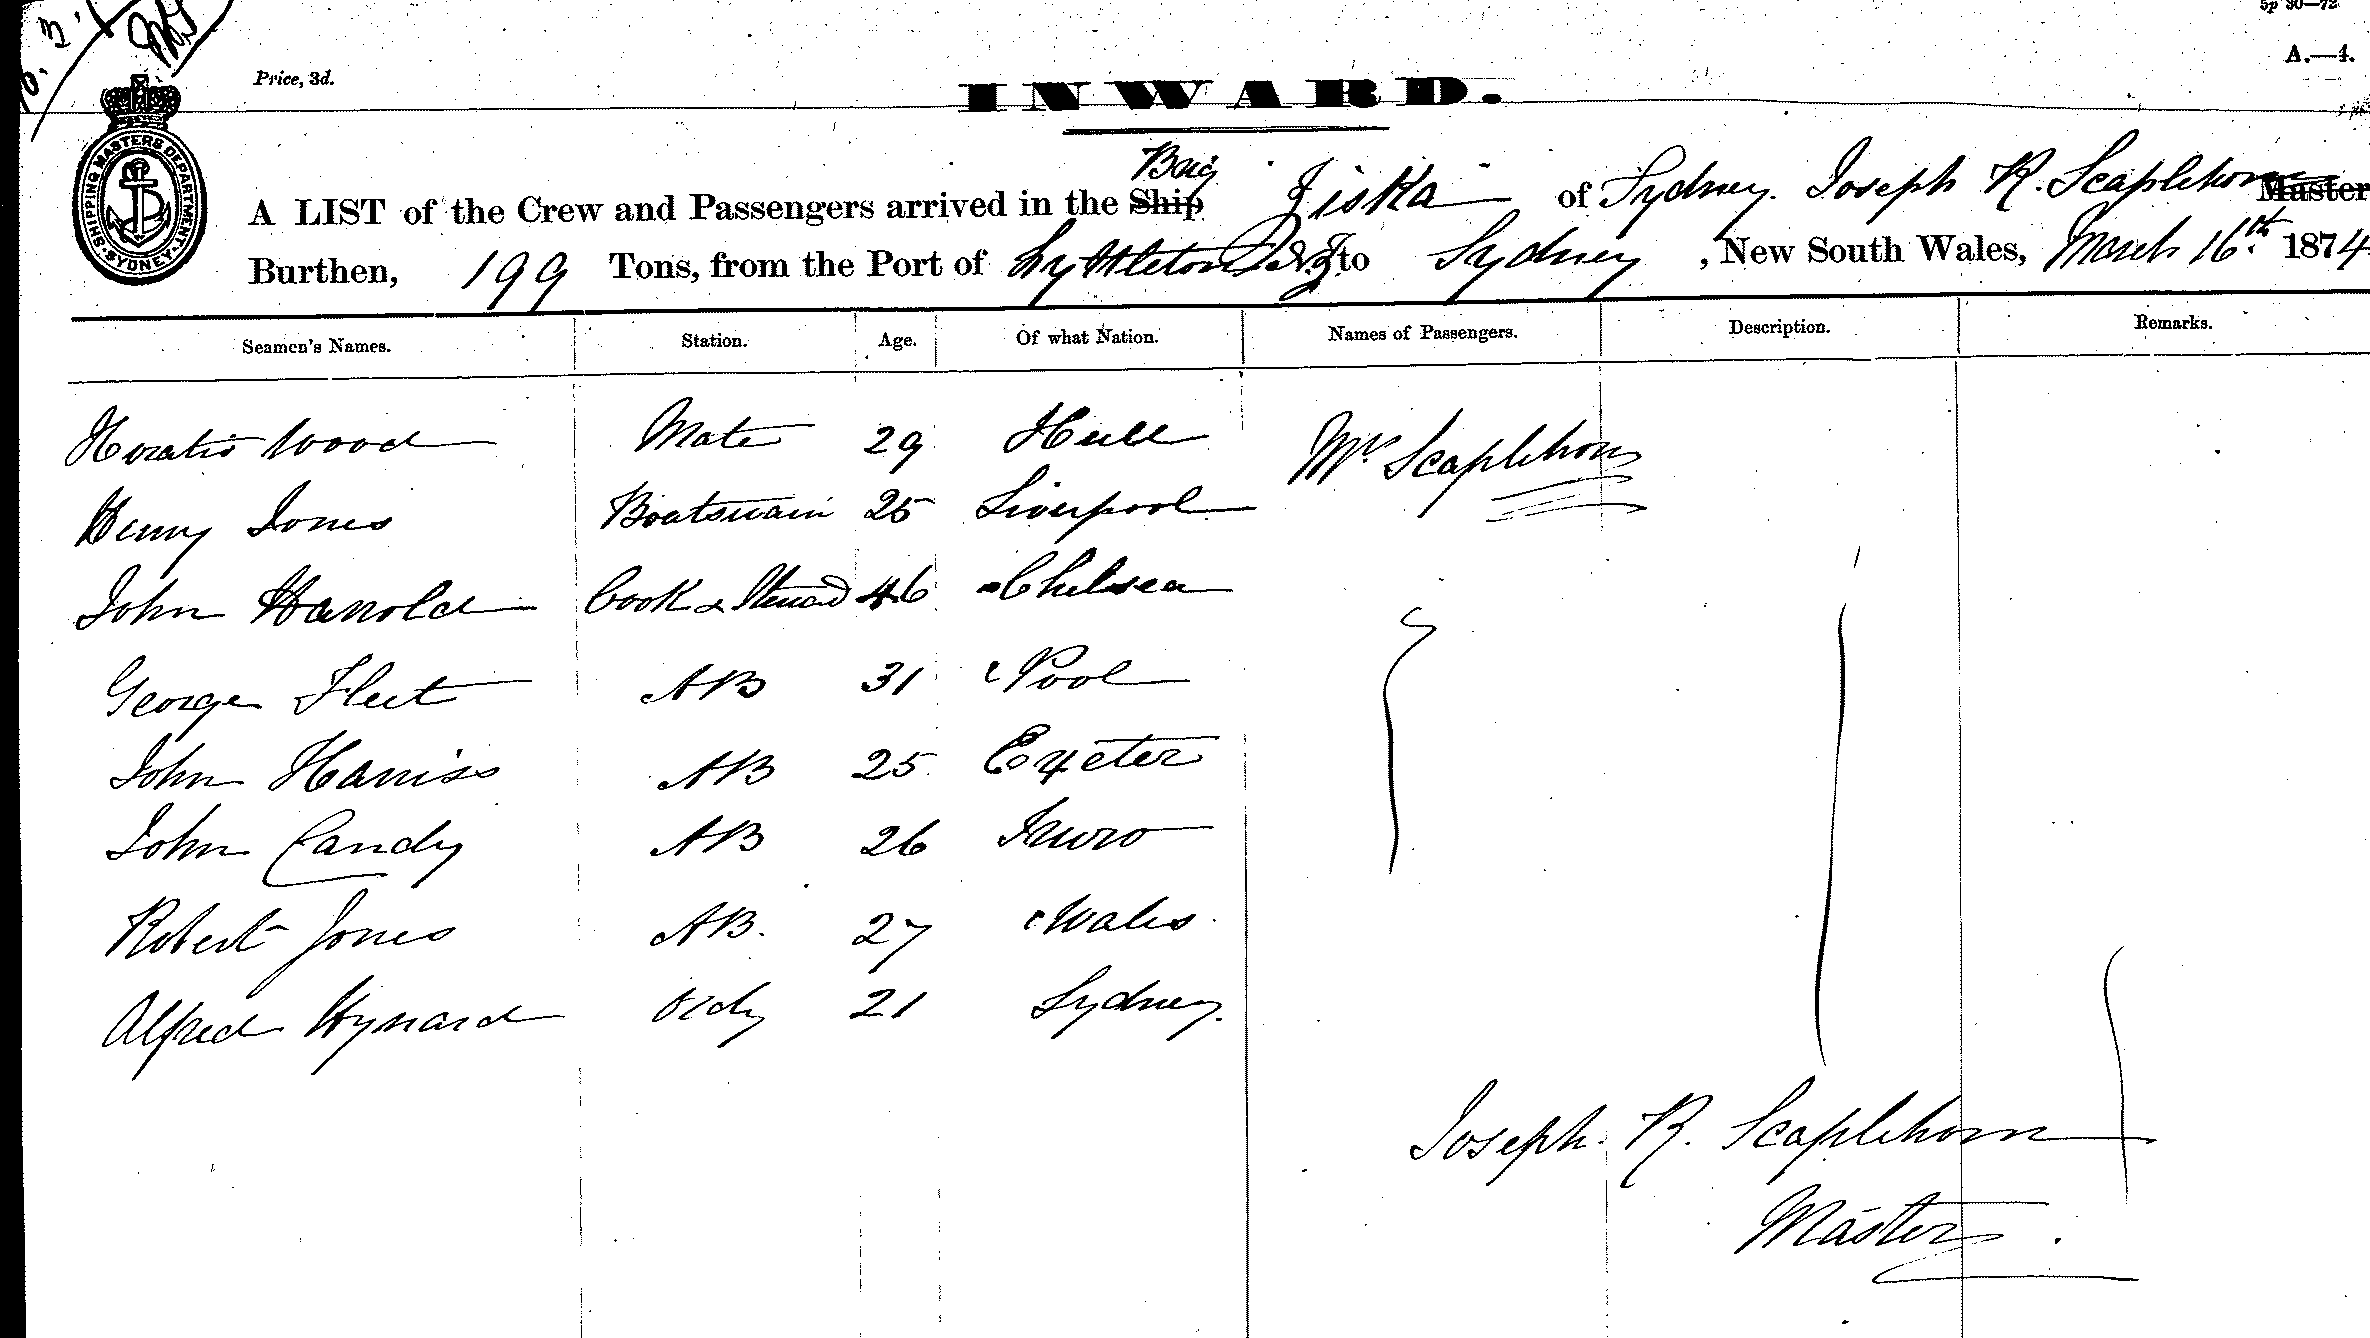 5p 30—72
A.—4.
Price, 3d.
INWARD.
SHIPPING MASTERS DEPARTMENT SYDNEY
Brig
A LIST of the Crew and Passengers arrived in the Ship Jiska of Sydney. Joseph R. Scaplehorn Master
Burthen, 199 Tons, from the Port of Lyttleton NZ to Sydney, New South Wales, March 16th. 1874
Seamen's Names. Station. Age. Of what Nation. Names of Passengers. Description. Remarks.
Horatio Wood Mate 29 Hull Mrs Scaplehorn
Henry Jones Boatswain 25 Liverpool
John Harrold Cook & Steward 46 Chelsea
George Fleet AB 31 Pool
John Harriss AB 25 Exeter
John Candy AB 26 Truro
Robert Jones AB. 27 Wales
Alfred Hynard Ordy 21 Sydney.
Joseph. R. Scaplehorn
Master